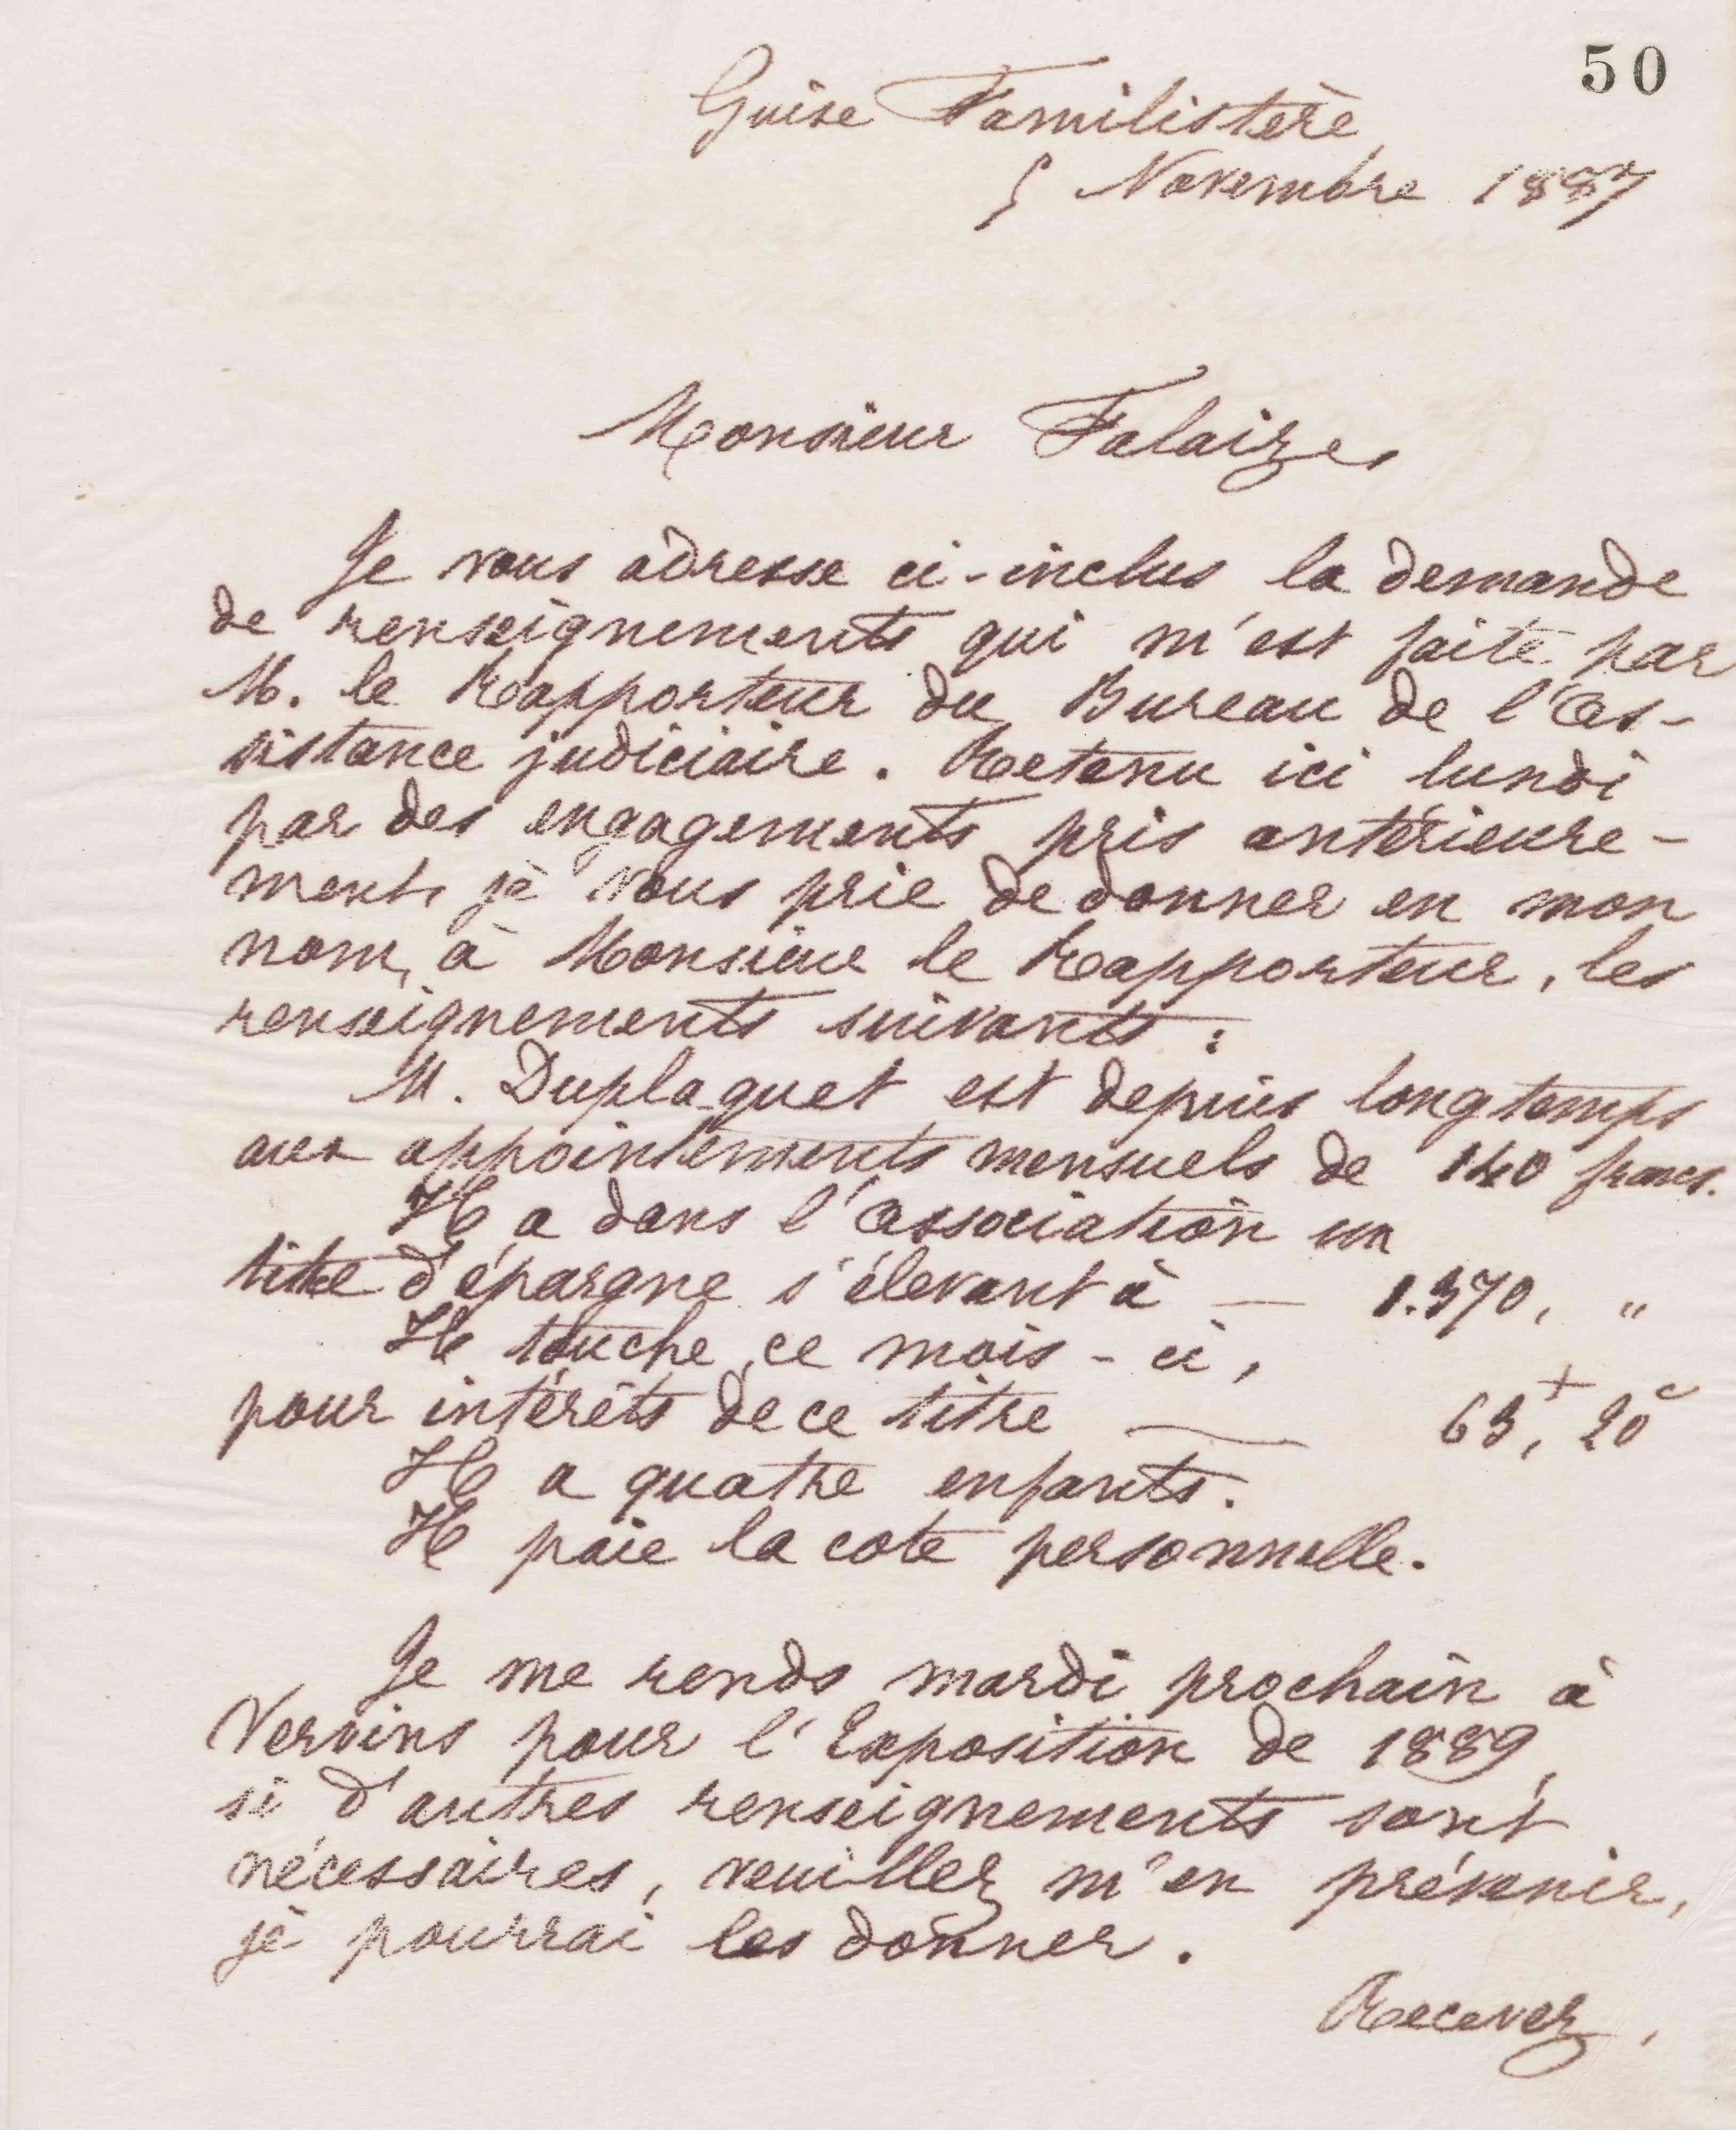 50
Guise Familistère
5 Novembre 1887
Monsieur Falaize,
Je vous adresse ci-inclus la demande
de renseignements qui m'est faite par
M. le Rapporteur du Bureau de l'As-
sistance judiciaire. Retenu ici lundi
par des engagements pris antérieure-
ment, je vous prie de donner en mon
nom, à Monsieur le Rapporteur, les
renseignements suivants :
M. Duplaquet est depuis longtemps
aux appointements mensuels de 140 francs.
Il a dans l'association un
titre d'épargne s'élevant à — 1.370, "
Il touche, ce mois-ci,
pour intérêts de ce titre — 63f, 20c
Il a quatre enfants.
Il paie la cote personnelle.
Je me rends mardi prochain à
Vervins pour l'Exposition de 1889,
si d'autres renseignements sont
nécessaires, veuillez m'en prévenir,
je pourrai les donner.
Recevez,